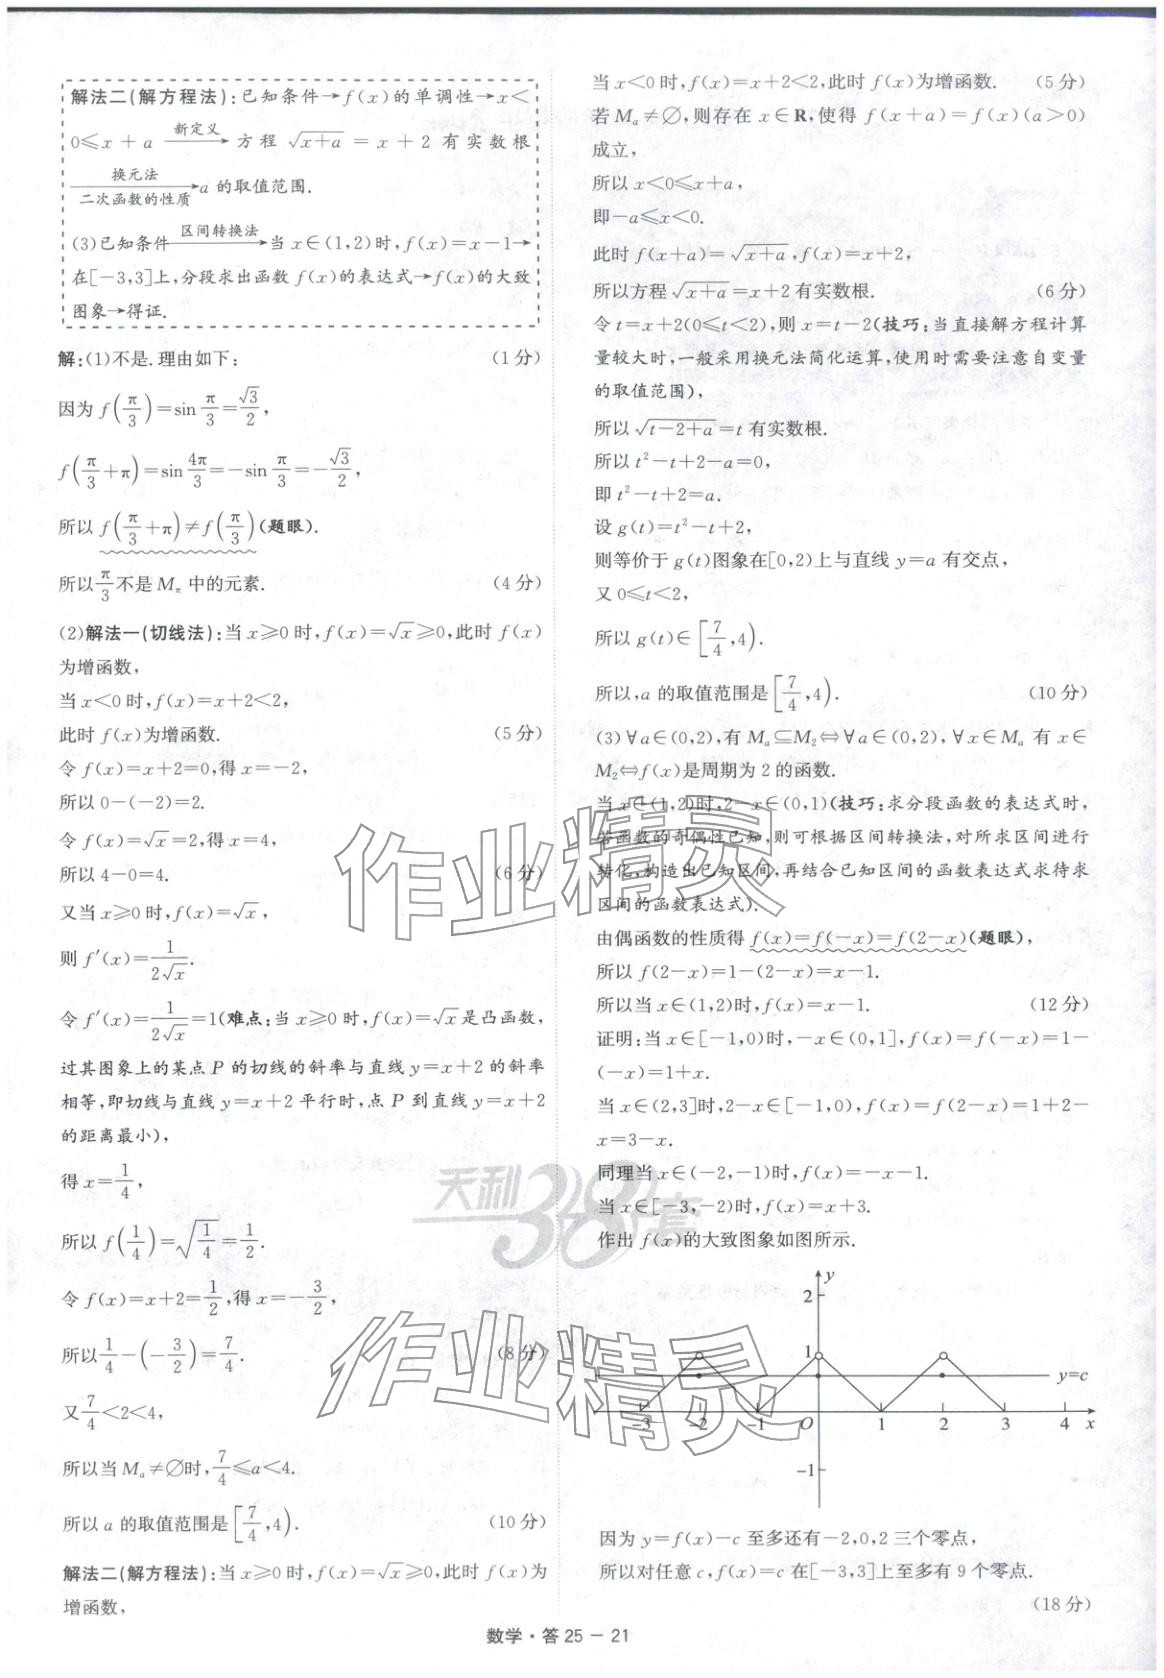 解法二(解方程法):已知条件→f(x)的单调性→x<
0≤x+a —新定义→ 方程 √(x+a) = x+2 有实数根
—换元法/二次函数的性质→ a 的取值范围.
(3)已知条件 —区间转换法→ 当 x∈(1,2)时,f(x)=x-1→
在[-3,3]上,分段求出函数 f(x)的表达式→f(x)的大致
图象→得证.
解:(1)不是.理由如下: (1分)
因为 f(π/3)=sin π/3=√3/2,
f(π/3+π)=sin 4π/3=-sin π/3=-√3/2,
所以 f(π/3+π)≠f(π/3)(题眼).
所以 π/3 不是 M_π 中的元素. (4分)
(2)解法一(切线法):当 x≥0 时,f(x)=√x≥0,此时 f(x)
为增函数,
当 x<0 时,f(x)=x+2<2,
此时 f(x)为增函数. (5分)
令 f(x)=x+2=0,得 x=-2,
所以 0-(-2)=2.
令 f(x)=√x=2,得 x=4,
所以 4-0=4. (6分)
又当 x≥0 时,f(x)=√x,
则 f′(x)=1/(2√x).
令 f′(x)=1/(2√x)=1(难点:当 x≥0 时,f(x)=√x 是凸函数,
过其图象上的某点 P 的切线的斜率与直线 y=x+2 的斜率
相等,即切线与直线 y=x+2 平行时,点 P 到直线 y=x+2
的距离最小),
得 x=1/4,
所以 f(1/4)=√(1/4)=1/2.
令 f(x)=x+2=1/2,得 x=-3/2,
所以 1/4-(-3/2)=7/4. (8分)
又 7/4<2<4,
所以当 M_a≠∅时,7/4≤a<4.
所以 a 的取值范围是 [7/4,4). (10分)
解法二(解方程法):当 x≥0 时,f(x)=√x≥0,此时 f(x)为
增函数,
当 x<0 时,f(x)=x+2<2,此时 f(x)为增函数. (5分)
若 M_a≠∅,则存在 x∈R,使得 f(x+a)=f(x)(a>0)
成立,
所以 x<0≤x+a,
即-a≤x<0.
此时 f(x+a)=√(x+a),f(x)=x+2,
所以方程 √(x+a)=x+2 有实数根. (6分)
令 t=x+2(0≤t<2),则 x=t-2(技巧:当直接解方程计算
量较大时,一般采用换元法简化运算,使用时需要注意自变量
的取值范围),
所以 √(t-2+a)=t 有实数根.
所以 t²-t+2-a=0,
即 t²-t+2=a.
设 g(t)=t²-t+2,
则等价于 g(t)图象在[0,2)上与直线 y=a 有交点,
又 0≤t<2,
所以 g(t)∈[7/4,4).
所以,a 的取值范围是 [7/4,4). (10分)
(3)∀a∈(0,2),有 M_a⊆M₂⇔∀a∈(0,2),∀x∈M_a 有 x∈
M₂⇔f(x)是周期为 2 的函数.
当 x∈(1,2)时,2-x∈(0,1)(技巧:求分段函数的表达式时,
若函数的奇偶性已知,则可根据区间转换法,对所求区间进行
转化,构造出已知区间,再结合已知区间的函数表达式求待求
区间的函数表达式).
由偶函数的性质得 f(x)=f(-x)=f(2-x)(题眼),
所以 f(2-x)=1-(2-x)=x-1.
所以当 x∈(1,2)时,f(x)=x-1. (12分)
证明:当 x∈[-1,0)时,-x∈(0,1],f(x)=f(-x)=1-
(-x)=1+x.
当 x∈(2,3]时,2-x∈[-1,0),f(x)=f(2-x)=1+2-
x=3-x.
同理当 x∈(-2,-1)时,f(x)=-x-1.
当 x∈[-3,-2)时,f(x)=x+3.
作出 f(x)的大致图象如图所示.
y
2
1
y=c
-3 -2 -1 O 1 2 3 4 x
-1
因为 y=f(x)-c 至多还有-2,0,2 三个零点,
所以对任意 c,f(x)=c 在[-3,3]上至多有 9 个零点.
(18分)
数学·答25-21
作业精灵
天利38套
作业精灵